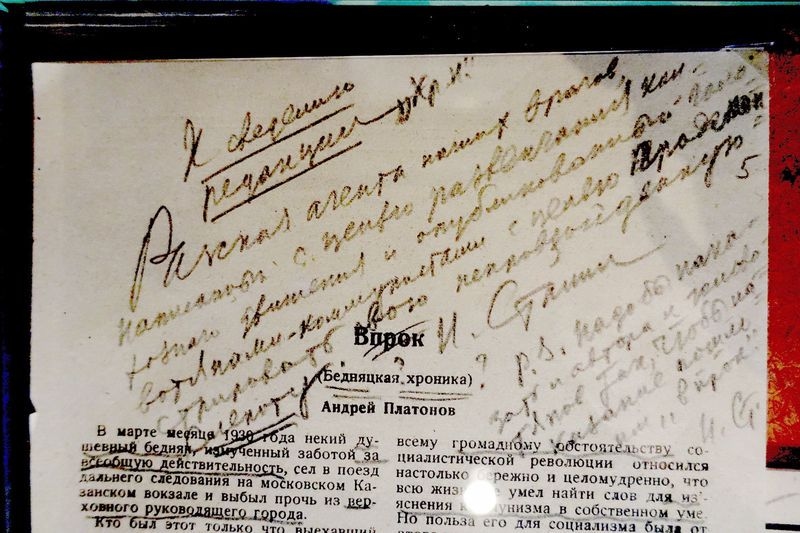 К сведению
редакции „Кр. н."
Рассказ агента наших врагов,
написанный с целью развенчания кол-
хозного движения и опубликованный голо-
вотяпами-коммунистами с целью продемон-
стрировать свою непревзойденную
слепоту.
И. Сталин
P.S. Надо бы нака-
зать и автора и голово-
тяпов так, чтобы на-
казание пошло
им „впрок".
И. Ст.
5
Впрок
?
?
(Бедняцкая хроника)
Андрей Платонов
В марте месяца 1930 года некий ду-
шевный бедняк, измученный заботой за
всеобщую действительность, сел в поезд
дальнего следования на московском Ка-
занском вокзале и выбыл прочь из вер-
ховного руководящего города.
Кто был этот только что выехавший
всему громадному обстоятельству со-
циалистической революции относился
настолько бережно и целомудренно, что
всю жизнь не умел найти слов для изъ-
яснения коммунизма в собственном уме.
Но польза его для социализма была от